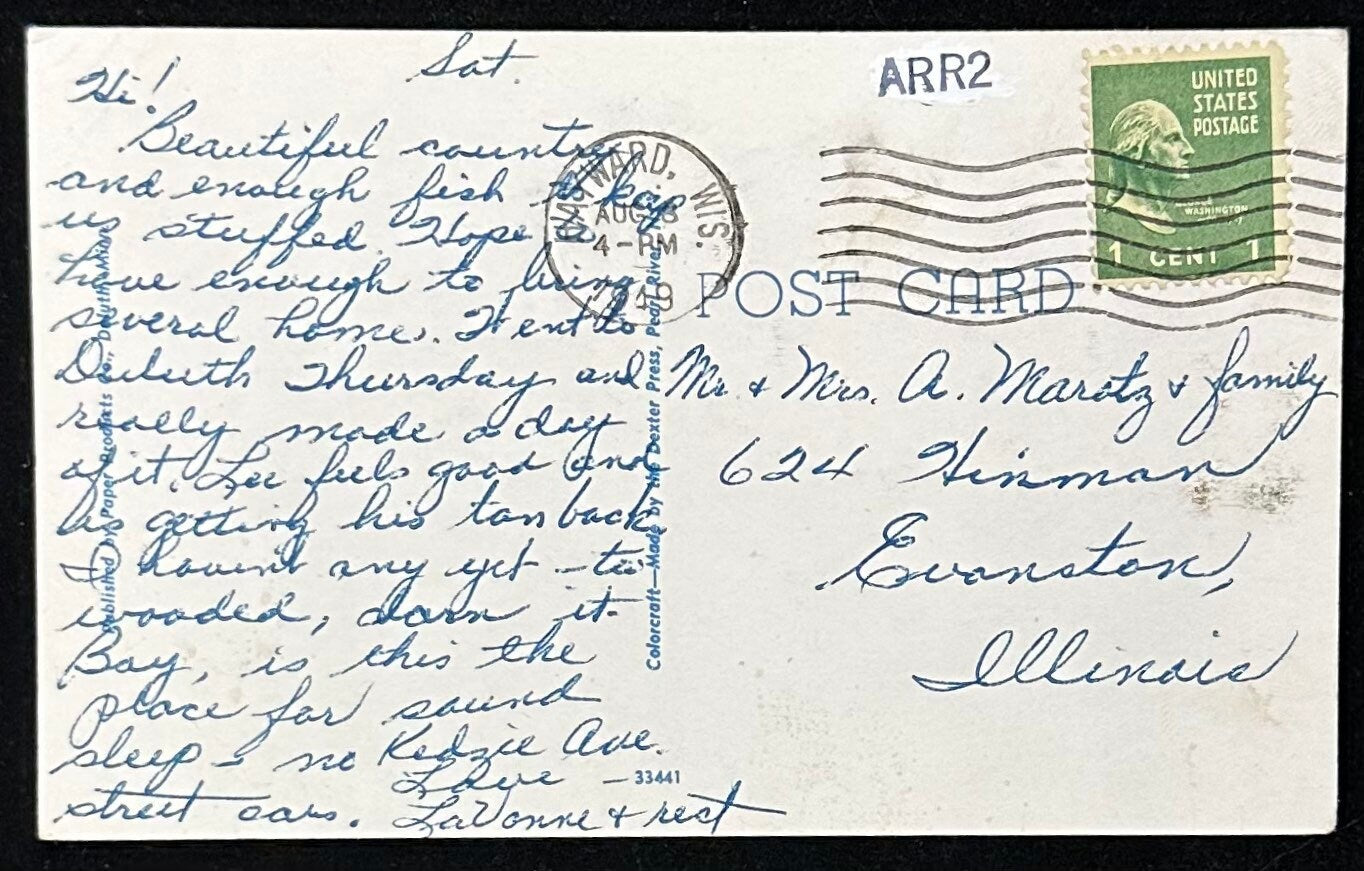 Sat.
Hi!
Beautiful country
and enough fish to keep
us stuffed. Hope to
have enough to bring
several home. Went to
Duluth Thursday and
really made a day
of it. Lee feels good and
is getting his tan back.
I haven't any yet - too
wooded, darn it.
Boy, is this the
place for sound
sleep - no Kedzie Ave.
street cars.
Love -
LaVonne & rest
Published by Paper Products Co., Duluth, Minn.
Colorcraft—Made by the Dexter Press, Pearl River,
33441
ARR2
HAYWARD, WIS.
AUG
4-PM
1949
UNITED
STATES
POSTAGE
WASHINGTON
1 CENT 1
POST CARD
Mr. & Mrs. A. Marotz & family
624 Hinman
Evanston,
Illinois